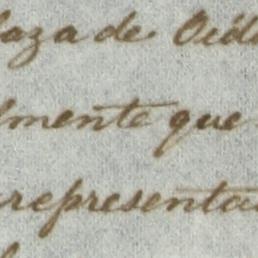 laza de Oid
lmente que
representa